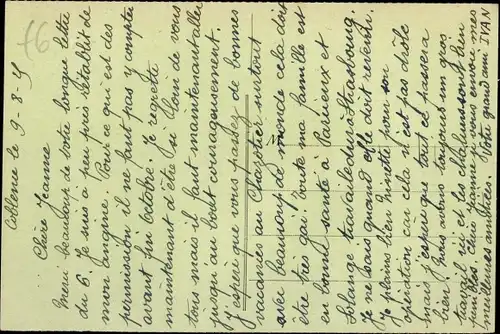 76
Coblence le 9-8-5
Chère Jeanne
Merci beaucoup de votre longue lettre
du 6. Je suis à peu près rétablit de
mon angine. Pour ce qui est des
permission il ne faut pas y compter
avant fin octobre. Je regrette
maintenant d'être si loin de vous
tous mais il faut maintenant aller
jusqu'au bout courageusement.
J'espère que vous passez de bonnes
vacances au Chazotier surtout
avec beaucoup de monde cela doit
être très gai. Toute ma famille est
en bonne santé à Parieux et
Solange travaille dur à Strasbourg.
Je ne sais quand elle doit revenir.
Je plains bien minette pour son
opération car cela n'est pas drôle
mais j'espère que tout ce passera
bien. Nous avons toujours un gros
travail ici et les chaleurs sont bien
Chère Jeanne je vous envoie mes
meilleures amitiées. Votre grand ami IVAN